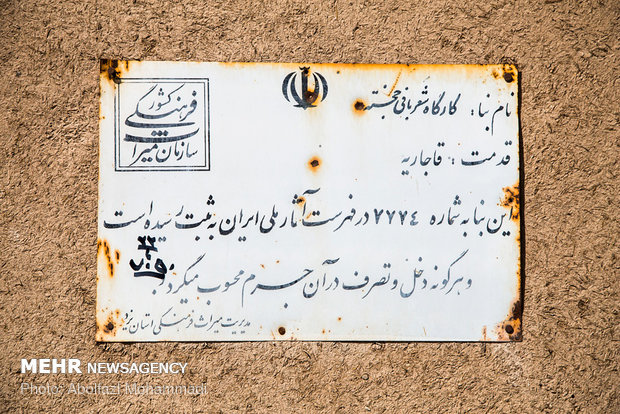 نام بنا: کارگاه شعربافی خجسته
قدمت: قاجاریه
سازمان میراث
فرهنگی
کشور
این بنا به شماره ۷۷۷۴ در فهرست آثار ملی ایران به ثبت رسیده است
و هرگونه دخل و تصرف در آن جرم محسوب میگردد.
مدیریت میراث فرهنگی استان یزد
MEHR NEWSAGENCY
Photo: Abolfazl Mohammadi